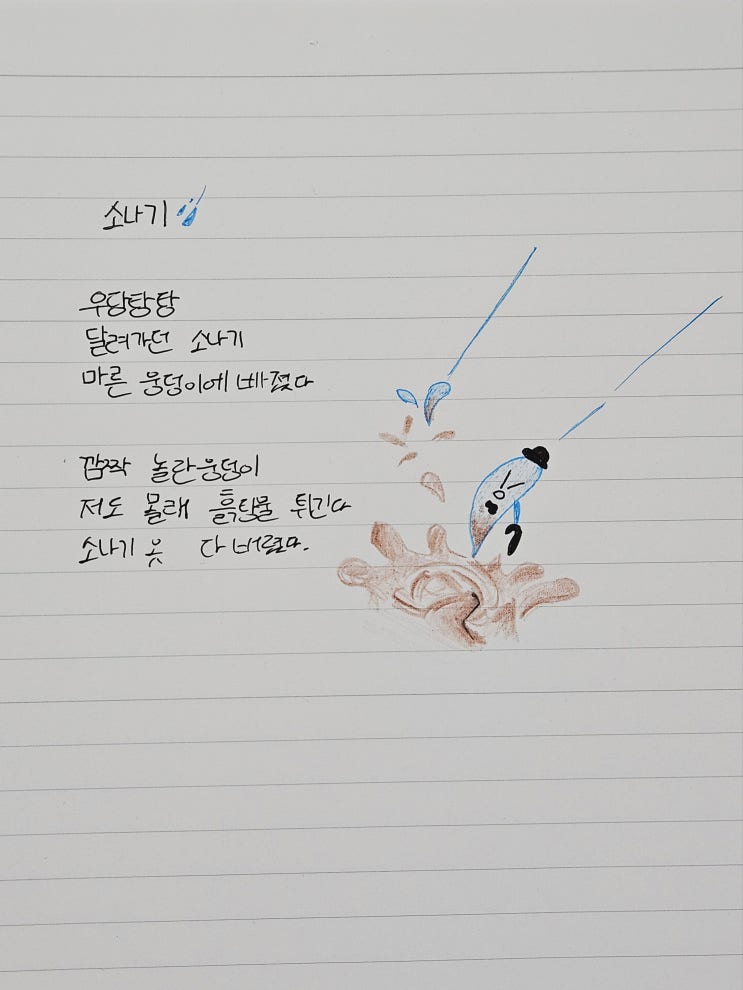 소나기
우당탕탕
달려가던 소나기
마른 웅덩이에 빠졌다
깜짝 놀란 웅덩이
저도 몰래 흙탕물 튀긴다
소나기 옷 다 버렸다.